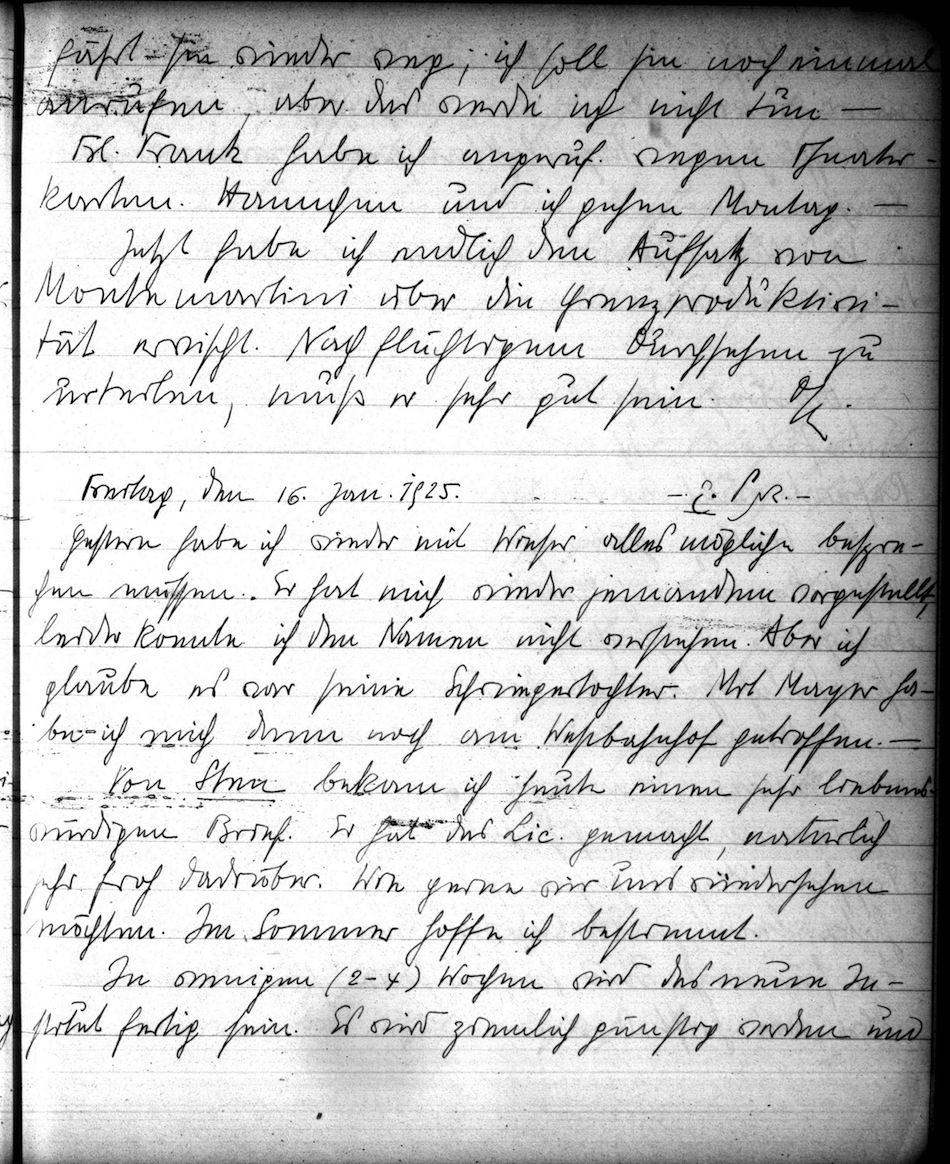 fährt sie wieder weg; ich soll sie noch einmal
anrufen, aber das werde ich nicht tun —
Frl. Frank habe ich angeruf. wegen Theater-
karten. Hannchen und ich gehen Montag. —
Jetzt habe ich endlich den Aufsatz von
Montemartini über die Grenzprodukti­vi-
tät erwischt. Nach flüchtigem Durchsehen zu
urteilen, muß er sehr gut sein.
Freitag, den 16. Jan. 1925.
Gestern habe ich wieder mit Wieser alles mögliche bespre-
chen müssen. Er hat mich wieder jemandem vorgestellt,
leider konnte ich den Namen nicht verstehen. Aber ich
glaube es war seine Schwiegertochter. Mit Mayer ha-
be ich mich dann noch am Westbahnhof getroffen. —
Von bekam ich heute einen sehr liebens-
würdigen Brief. Er hat das Lic. gemacht, natürlich
sehr froh dadrüber. Wie gerne wir uns wiedersehen
möchten. Im Sommer hoffe ich bestimmt.
In wenigen (2-4) Wochen wird das neue In-
stitut fertig sein. Es wird ziemlich günstig werden und